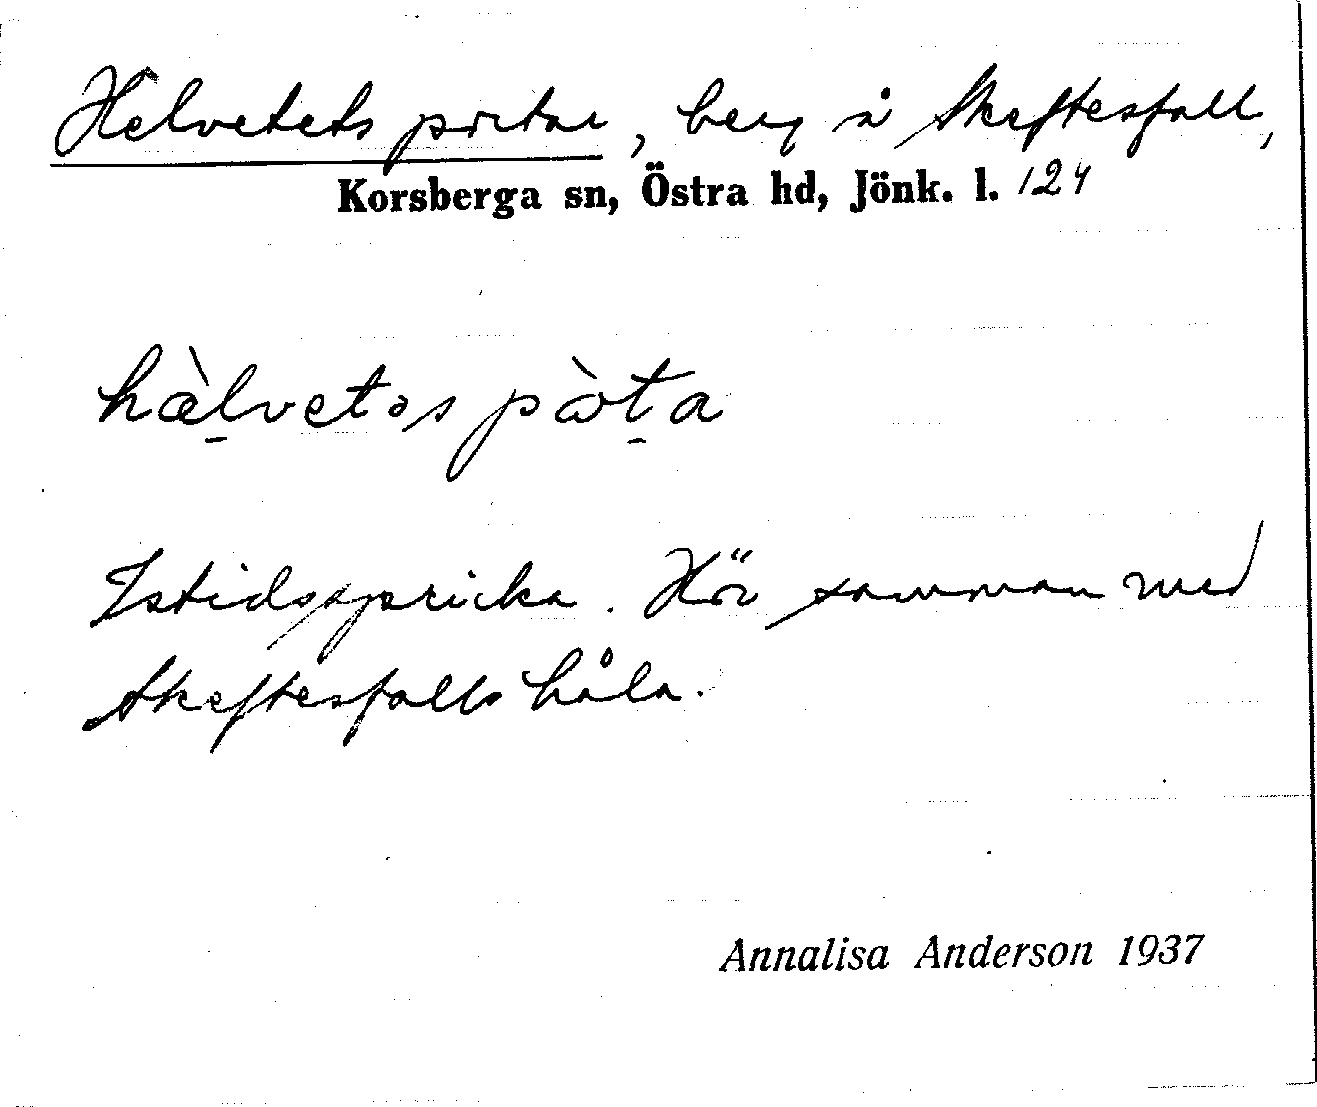 Helvetets portar, berg å Skeftesfall,
Korsberga sn, Östra hd, Jönk. l. 124
hæ̀lvetəs pòrta
Istidsspricka. Hör samman med
Skeftesfalls håla.
Annalisa Anderson 1937